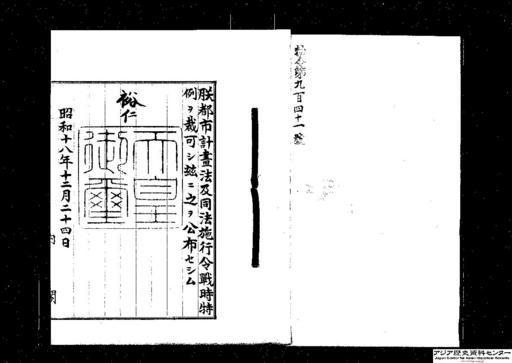 勅令第九百四十一號
朕都市計畫法及同法施行令戰時特
例ヲ裁可シ玆ニ之ヲ公布セシム
裕仁
天皇御璽
昭和十八年十二月二十四日
アジア歴史資料センター
Japan Center for Asian Historical Records